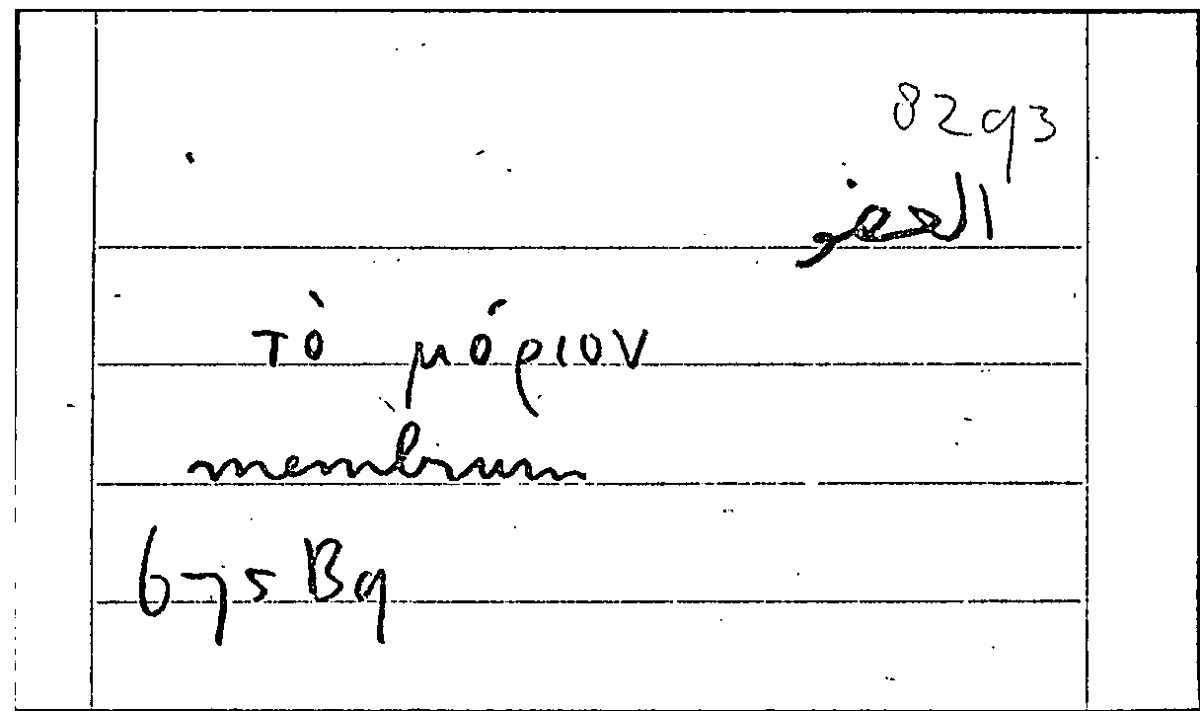 8293
العضو
τὸ μόριον
membrum
675 B9